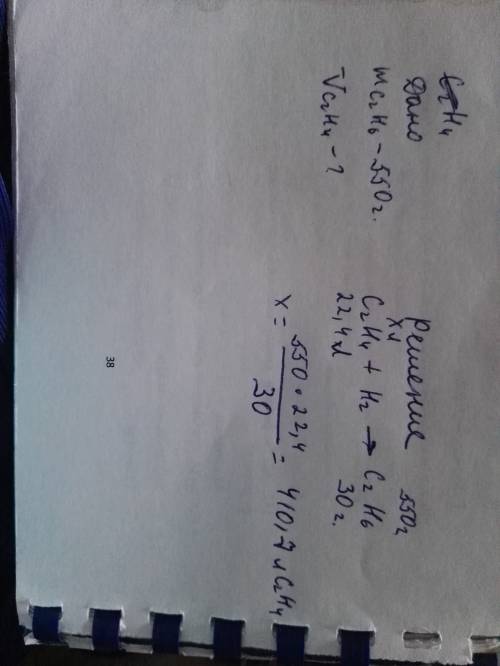 C₂H₄
Дано
mC₂H₆ - 550г.
VC₂H₄ - ?
Решение
Xл 550г
C₂H₄ + H₂ → C₂H₆
22,4л 30г.
X = 550 • 22,4 / 30 = 410,7 л C₂H₄
38